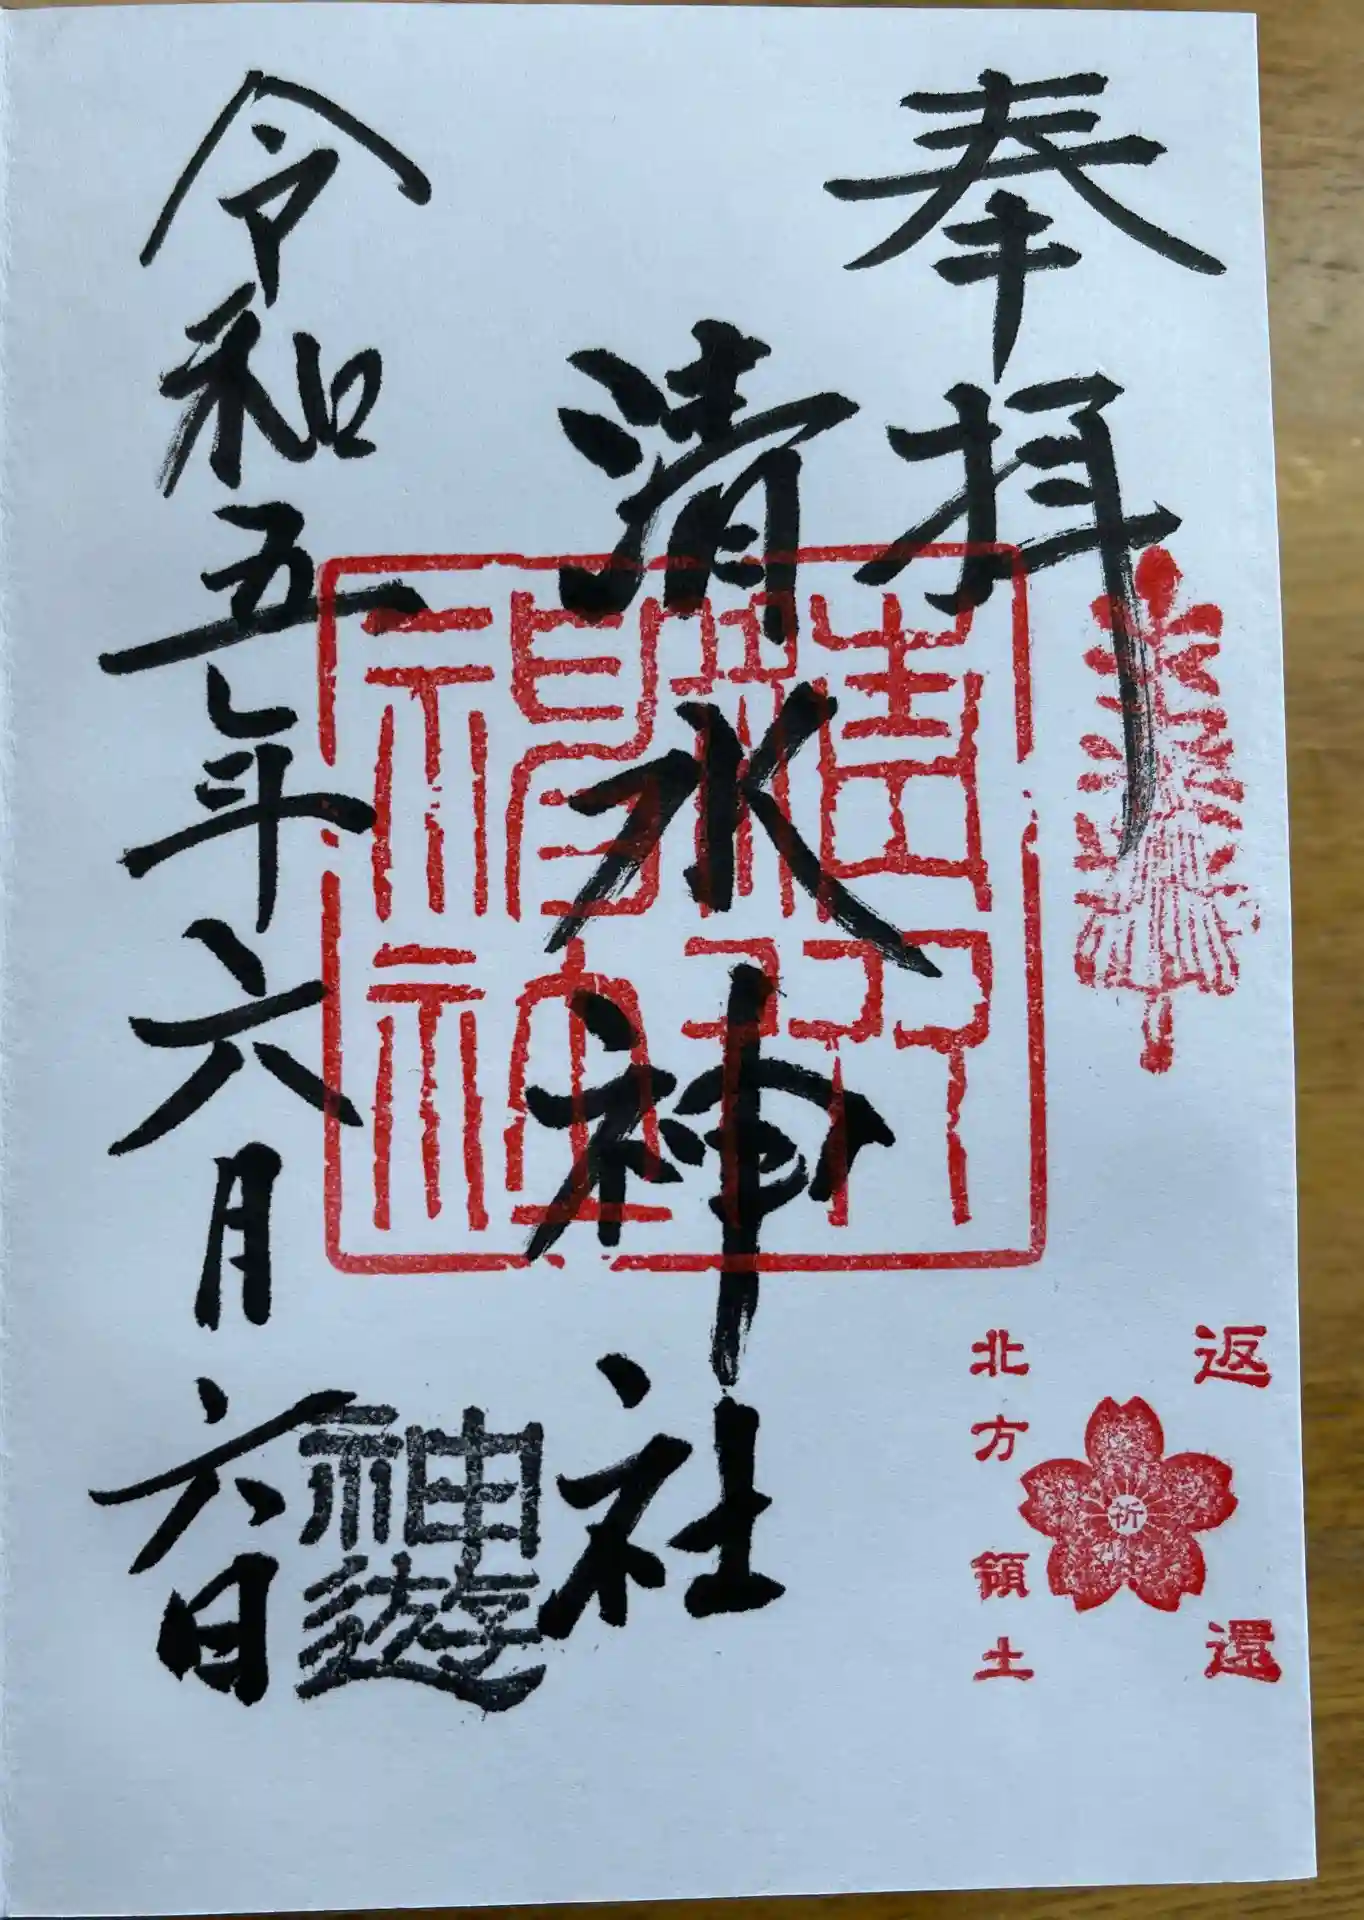 奉拝
清水神社
令和五年六月六日
神遊
返還
祈
北方領土